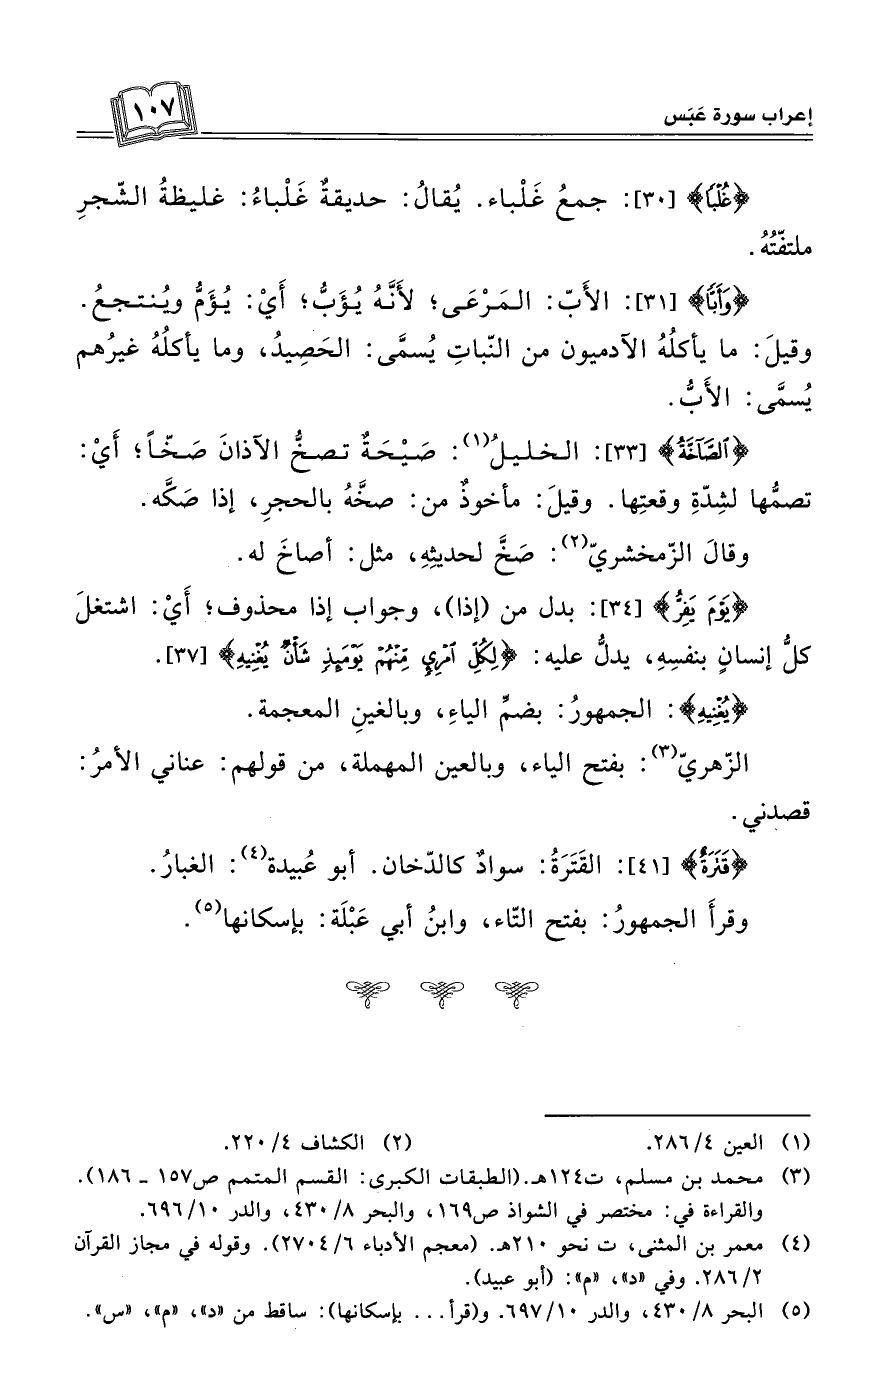 إعراب سورة عَبَس
١٠٧
﴿غُلْبًا﴾ [٣٠]: جمعُ غَلْباء. يُقالُ: حديقةٌ غَلْباءُ: غليظةُ الشّجرِ
ملتفّتُهُ.
﴿وَأَبًّا﴾ [٣١]: الأَبّ: المَرْعَى؛ لأَنَّهُ يُؤَبُّ؛ أَيْ: يُؤَمُّ ويُنتجعُ.
وقيلَ: ما يأكلُهُ الآدميون من النّباتِ يُسمَّى: الحَصِيدُ، وما يأكلُهُ غيرُهم
يُسمَّى: الأَبُّ.
﴿ٱلصَّآخَّةُ﴾ [٣٣]: الخليلُ(١): صَيْحَةٌ تصخُّ الآذانَ صَخّاً؛ أَيْ:
تصمُّها لشِدّةِ وقعتِها. وقيلَ: مأخوذٌ من: صخَّهُ بالحجرِ، إذا صَكَّه.
وقالَ الزّمخشريّ(٢): صَخَّ لحديثِهِ، مثل: أصاخَ له.
﴿يَوْمَ يَفِرُّ﴾ [٣٤]: بدل من (إذا)، وجواب إذا محذوف؛ أَيْ: اشتغلَ
كلُّ إنسانٍ بنفسِهِ، يدلُّ عليه: ﴿لِكُلِّ ٱمْرِئٍ مِّنْهُمْ يَوْمَئِذٍ شَأْنٌ يُغْنِيهِ﴾ [٣٧].
﴿يُغْنِيهِ﴾: الجمهورُ: بضمِّ الياءِ، وبالغينِ المعجمة.
الزّهريّ(٣): بفتح الياء، وبالعين المهملة، من قولهم: عناني الأمرُ:
قصدني.
﴿قَتَرَةٌ﴾ [٤١]: القَتَرَةُ: سوادٌ كالدّخان. أبو عُبيدة(٤): الغبارُ.
وقرأَ الجمهورُ: بفتح التّاء، وابنُ أبي عَبْلَة: بإسكانها(٥).
(١) العين ٢٨٦/٤. (٢) الكشاف ٢٢٠/٤.
(٣) محمد بن مسلم، ت١٢٤هـ.(الطبقات الكبرى: القسم المتمم ص١٥٧ ـ ١٨٦).
والقراءة في: مختصر في الشواذ ص١٦٩، والبحر ٤٣٠/٨، والدر ٦٩٦/١٠.
(٤) معمر بن المثنى، ت نحو ٢١٠هـ. (معجم الأدباء ٢٧٠٤/٦). وقوله في مجاز القرآن
٢٨٦/٢. وفي «د»، «م»: (أبو عبيد).
(٥) البحر ٤٣٠/٨، والدر ٦٩٧/١٠. و(قرأ... بإسكانها): ساقط من «د»، «م»، «س».